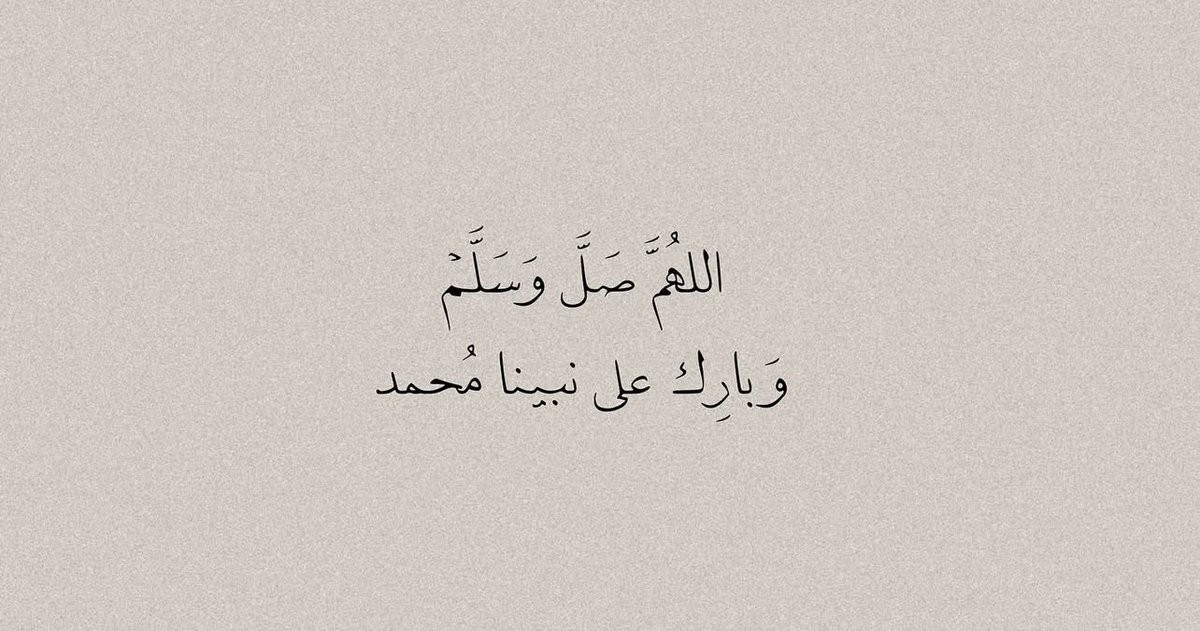 اللهُمَّ صَلَّ وَسَلَّمْ
وَبارِك على نبينا مُحمد